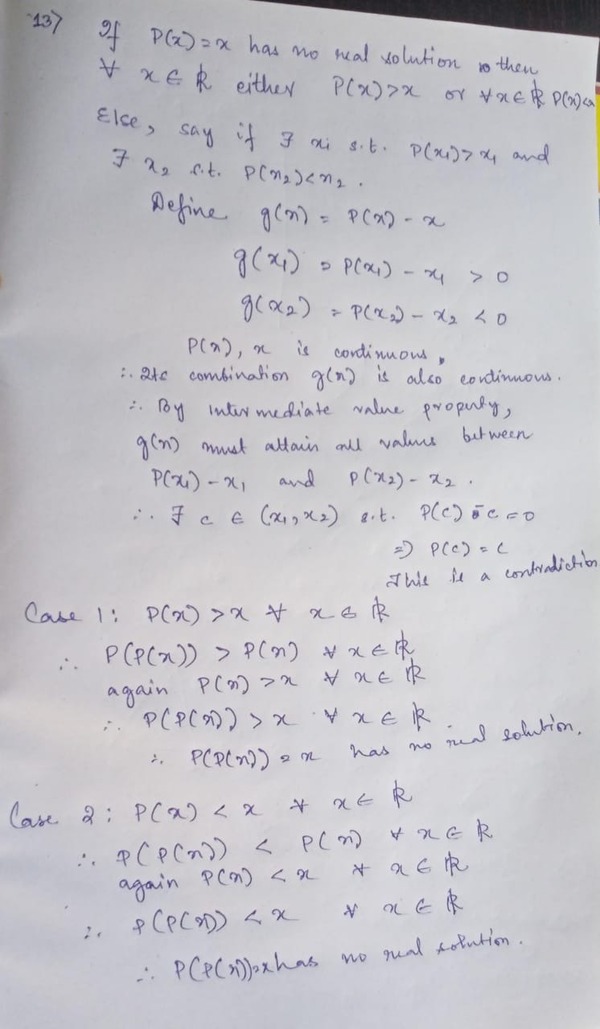 13) If P(x) = x has no real solution then
∀ x ∈ ℝ either P(x) > x or ∀ x ∈ ℝ P(x) < x
Else, say if ∃ x₁ s.t. P(x₁) > x₁ and
∃ x₂ s.t. P(x₂) < x₂.
Define g(x) = P(x) - x
g(x₁) = P(x₁) - x₁ > 0
g(x₂) = P(x₂) - x₂ < 0
P(x), x is continuous,
∴ Its combination g(x) is also continuous.
∴ By Intermediate value property,
g(x) must attain all values between
P(x₁) - x₁ and P(x₂) - x₂.
∴ ∃ c ∈ (x₁, x₂) s.t. P(c) - c = 0
⇒ P(c) = c
This is a contradiction
Case 1: P(x) > x ∀ x ∈ ℝ
∴ P(P(x)) > P(x) ∀ x ∈ ℝ
again P(x) > x ∀ x ∈ ℝ
∴ P(P(x)) > x ∀ x ∈ ℝ
∴ P(P(x)) = x has no real solution.
Case 2: P(x) < x ∀ x ∈ ℝ
∴ P(P(x)) < P(x) ∀ x ∈ ℝ
again P(x) < x ∀ x ∈ ℝ
∴ P(P(x)) < x ∀ x ∈ ℝ
∴ P(P(x)) = x has no real solution.